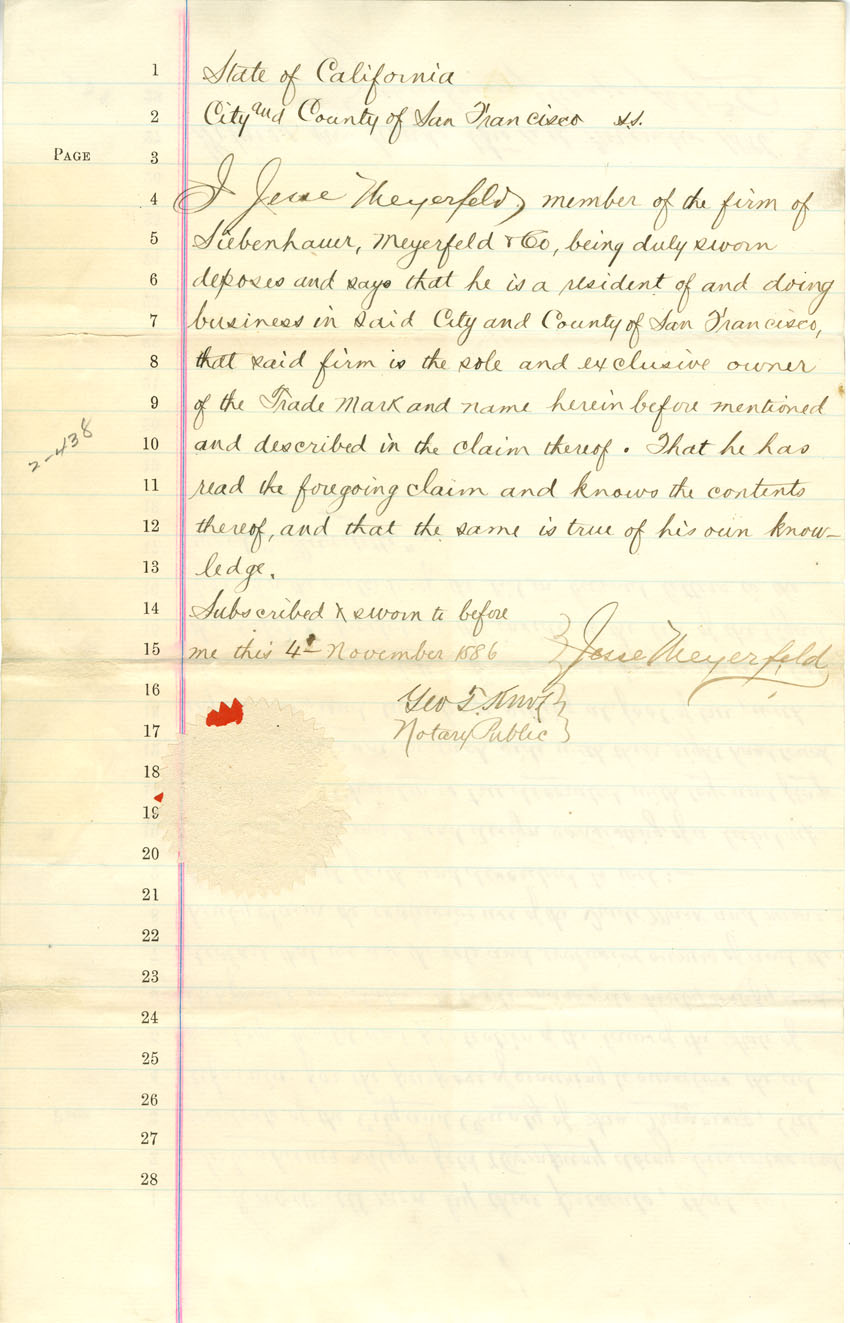 1 State of California
2 City and County of San Francisco s.s.
PAGE 3
4 I Jesse Meyerfeld, member of the firm of
5 Siebenhauer, Meyerfeld & Co, being duly sworn
6 deposes and says that he is a resident of and doing
7 business in said City and County of San Francisco,
8 that said firm is the sole and exclusive owner
9 of the Trade Mark and name herein before mentioned
2-438
10 and described in the claim thereof. That he has
11 read the foregoing claim and knows the contents
12 thereof, and that the same is true of his own know-
13 ledge.
14 Subscribed & sworn to before
15 me this 4th November 1886 Jesse Meyerfeld
16 Geo T. Knox
17 Notary Public
18
19
20
21
22
23
24
25
26
27
28